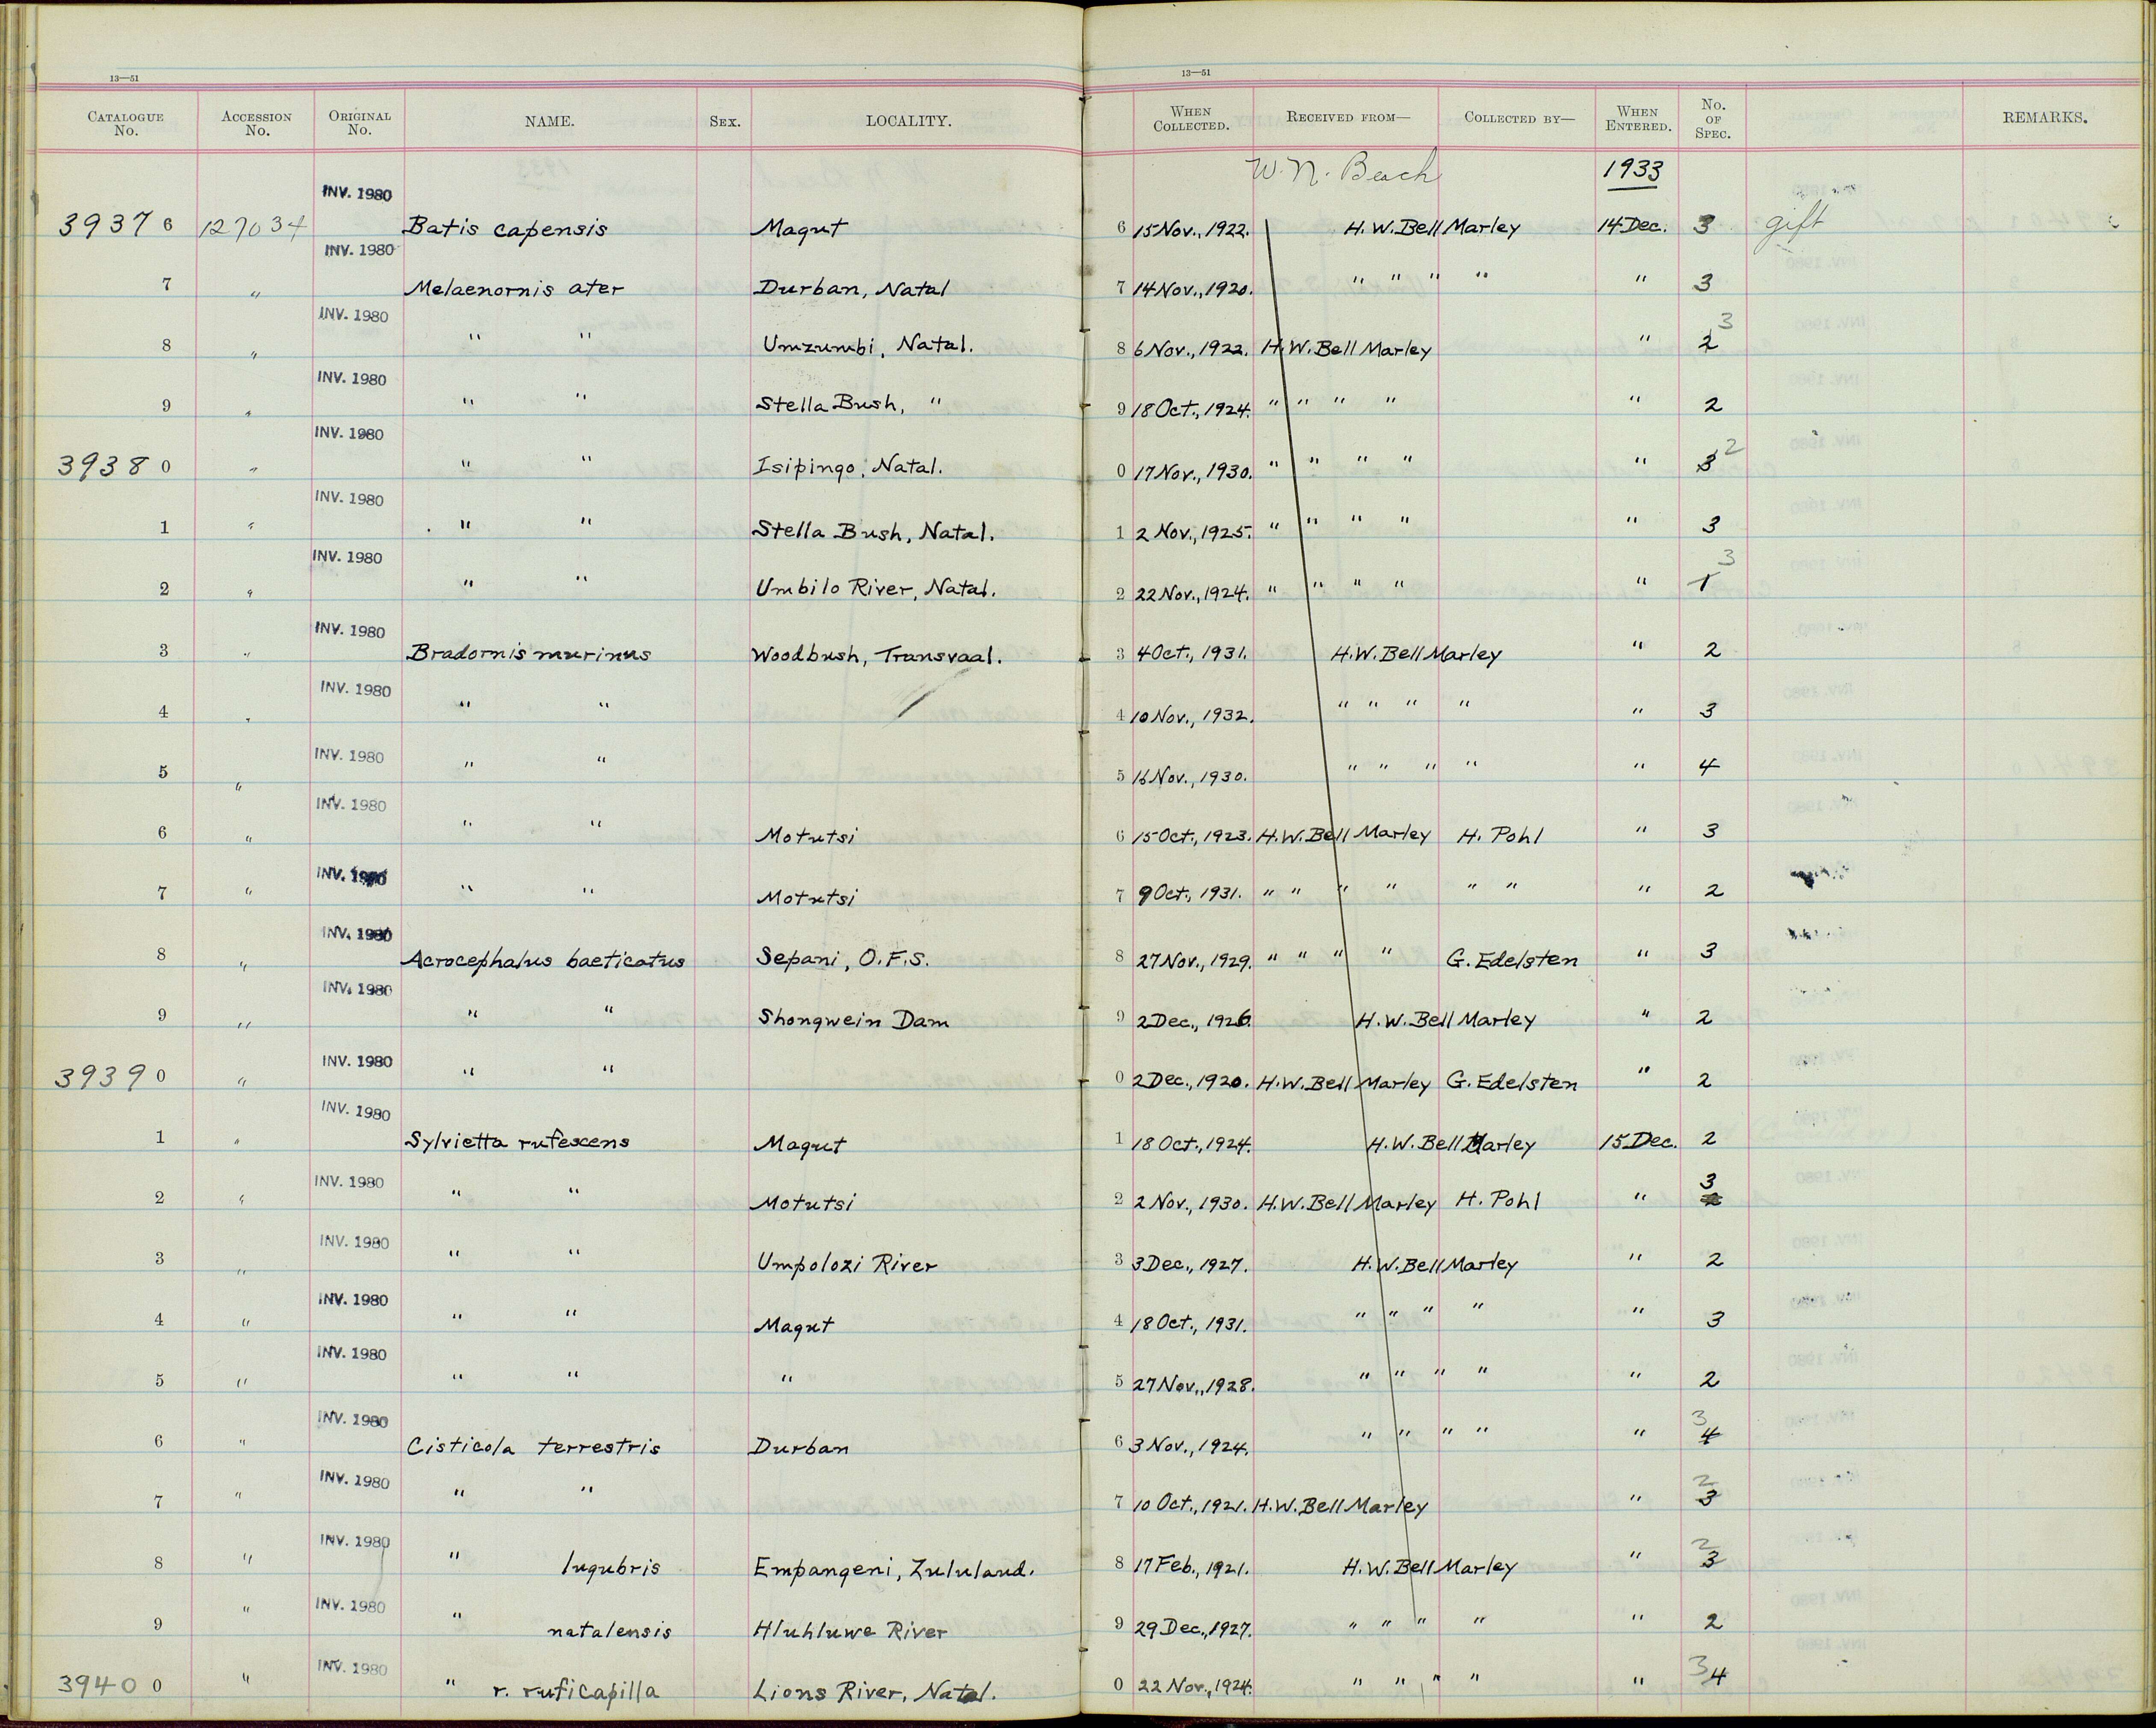 13—51 13—51
CATALOGUE No. ACCESSION No. ORIGINAL No. NAME. SEX. LOCALITY. WHEN COLLECTED. RECEIVED FROM— COLLECTED BY— WHEN ENTERED. No. OF SPEC. REMARKS.
W. N. Beach 1933
39376 127034 INV. 1980 Batis capensis Magut 6 15 Nov., 1922. H. W. Bell Marley 14 Dec. 3 gift
7 " INV. 1980 Melaenornis ater Durban, Natal 7 14 Nov., 1920. " " " " " 3
8 " INV. 1980 " " Umzumbi, Natal. 8 6 Nov., 1922. H. W. Bell Marley " 2 3
9 " INV. 1980 " " Stella Bush, " 9 18 Oct., 1924. " " " " " 2
39380 " INV. 1980 " " Isipingo, Natal. 0 17 Nov., 1930. " " " " " 3 2
1 " INV. 1980 " " Stella Bush, Natal. 1 2 Nov., 1925. " " " " " 3
2 " INV. 1980 " " Umbilo River, Natal. 2 22 Nov., 1924. " " " " " 1 3
3 " INV. 1980 Bradornis murinus Woodbush, Transvaal. 3 4 Oct., 1931. H. W. Bell Marley " 2
4 " INV. 1980 " " 4 10 Nov., 1932. " " " " " 3
5 " INV. 1980 " " 5 16 Nov., 1930. " " " " " 4
6 " INV. 1980 " " Motutsi 6 15 Oct., 1923. H. W. Bell Marley H. Pohl " 3
7 " INV. 1980 " " Motutsi 7 9 Oct., 1931. " " " " " " " 2
8 " INV. 1980 Acrocephalus baeticatus Sepani, O.F.S. 8 27 Nov., 1929. " " " " G. Edelsten " 3
9 " INV. 1980 " " Shongwein Dam 9 2 Dec., 1926. H. W. Bell Marley " 2
39390 " INV. 1980 " " 0 2 Dec., 1920. H. W. Bell Marley G. Edelsten " 2
1 " INV. 1980 Sylvietta rufescens Magut 1 18 Oct., 1924. H. W. Bell Marley 15 Dec. 2
2 " INV. 1980 " " Motutsi 2 2 Nov., 1930. H. W. Bell Marley H. Pohl " 3
3 " INV. 1980 " " Umpolozi River 3 3 Dec., 1927. H. W. Bell Marley " 2
4 " INV. 1980 " " Magut 4 18 Oct., 1931. " " " " " 3
5 " INV. 1980 " " " 5 27 Nov., 1928. " " " " " 2
6 " INV. 1980 Cisticola terrestris Durban 6 3 Nov., 1924. " " " " " 4 3
7 " INV. 1980 " " 7 10 Oct., 1921. H. W. Bell Marley " 3 2
8 " INV. 1980 " lugubris Empangeni, Zululand. 8 17 Feb., 1921. H. W. Bell Marley " 3 2
9 " INV. 1980 " natalensis Hluhluwe River 9 29 Dec., 1927. " " " " " 2
39400 " INV. 1980 " r. ruficapilla Lions River, Natal. 0 22 Nov., 1924. " " " " " 3 4